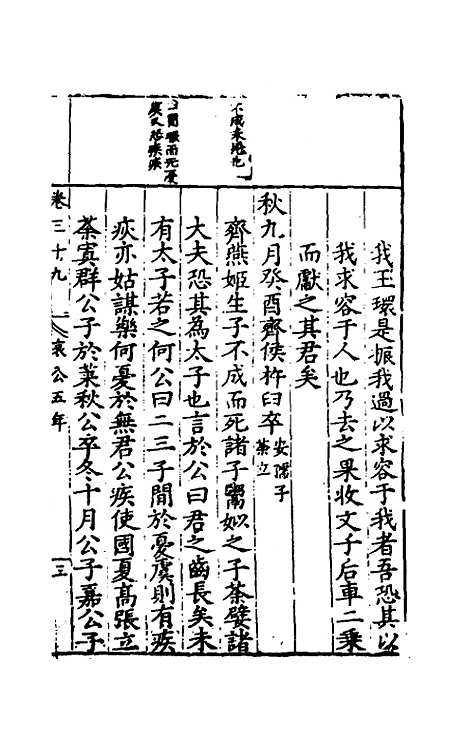 我玉環是振我過以求容于我者吾恐其以
我求容于人也乃去之果收文子后車二乘
而獻之其君矣
秋九月癸酉齊侯杵臼卒
安孺子
荼立
齊燕姬生子不成而死諸子鬻姒之子荼嬖諸
大夫恐其為太子也言於公曰君之齒長矣未
有太子若之何公曰二三子間於憂虞則有疾
疢亦姑謀樂何憂於無君公疾使國夏高張立
荼寘群公子於萊秋公卒冬十月公子嘉公子
不成未冠也
間暇而死憂
虞又恐疾疢
卷三十九
哀公五年
三